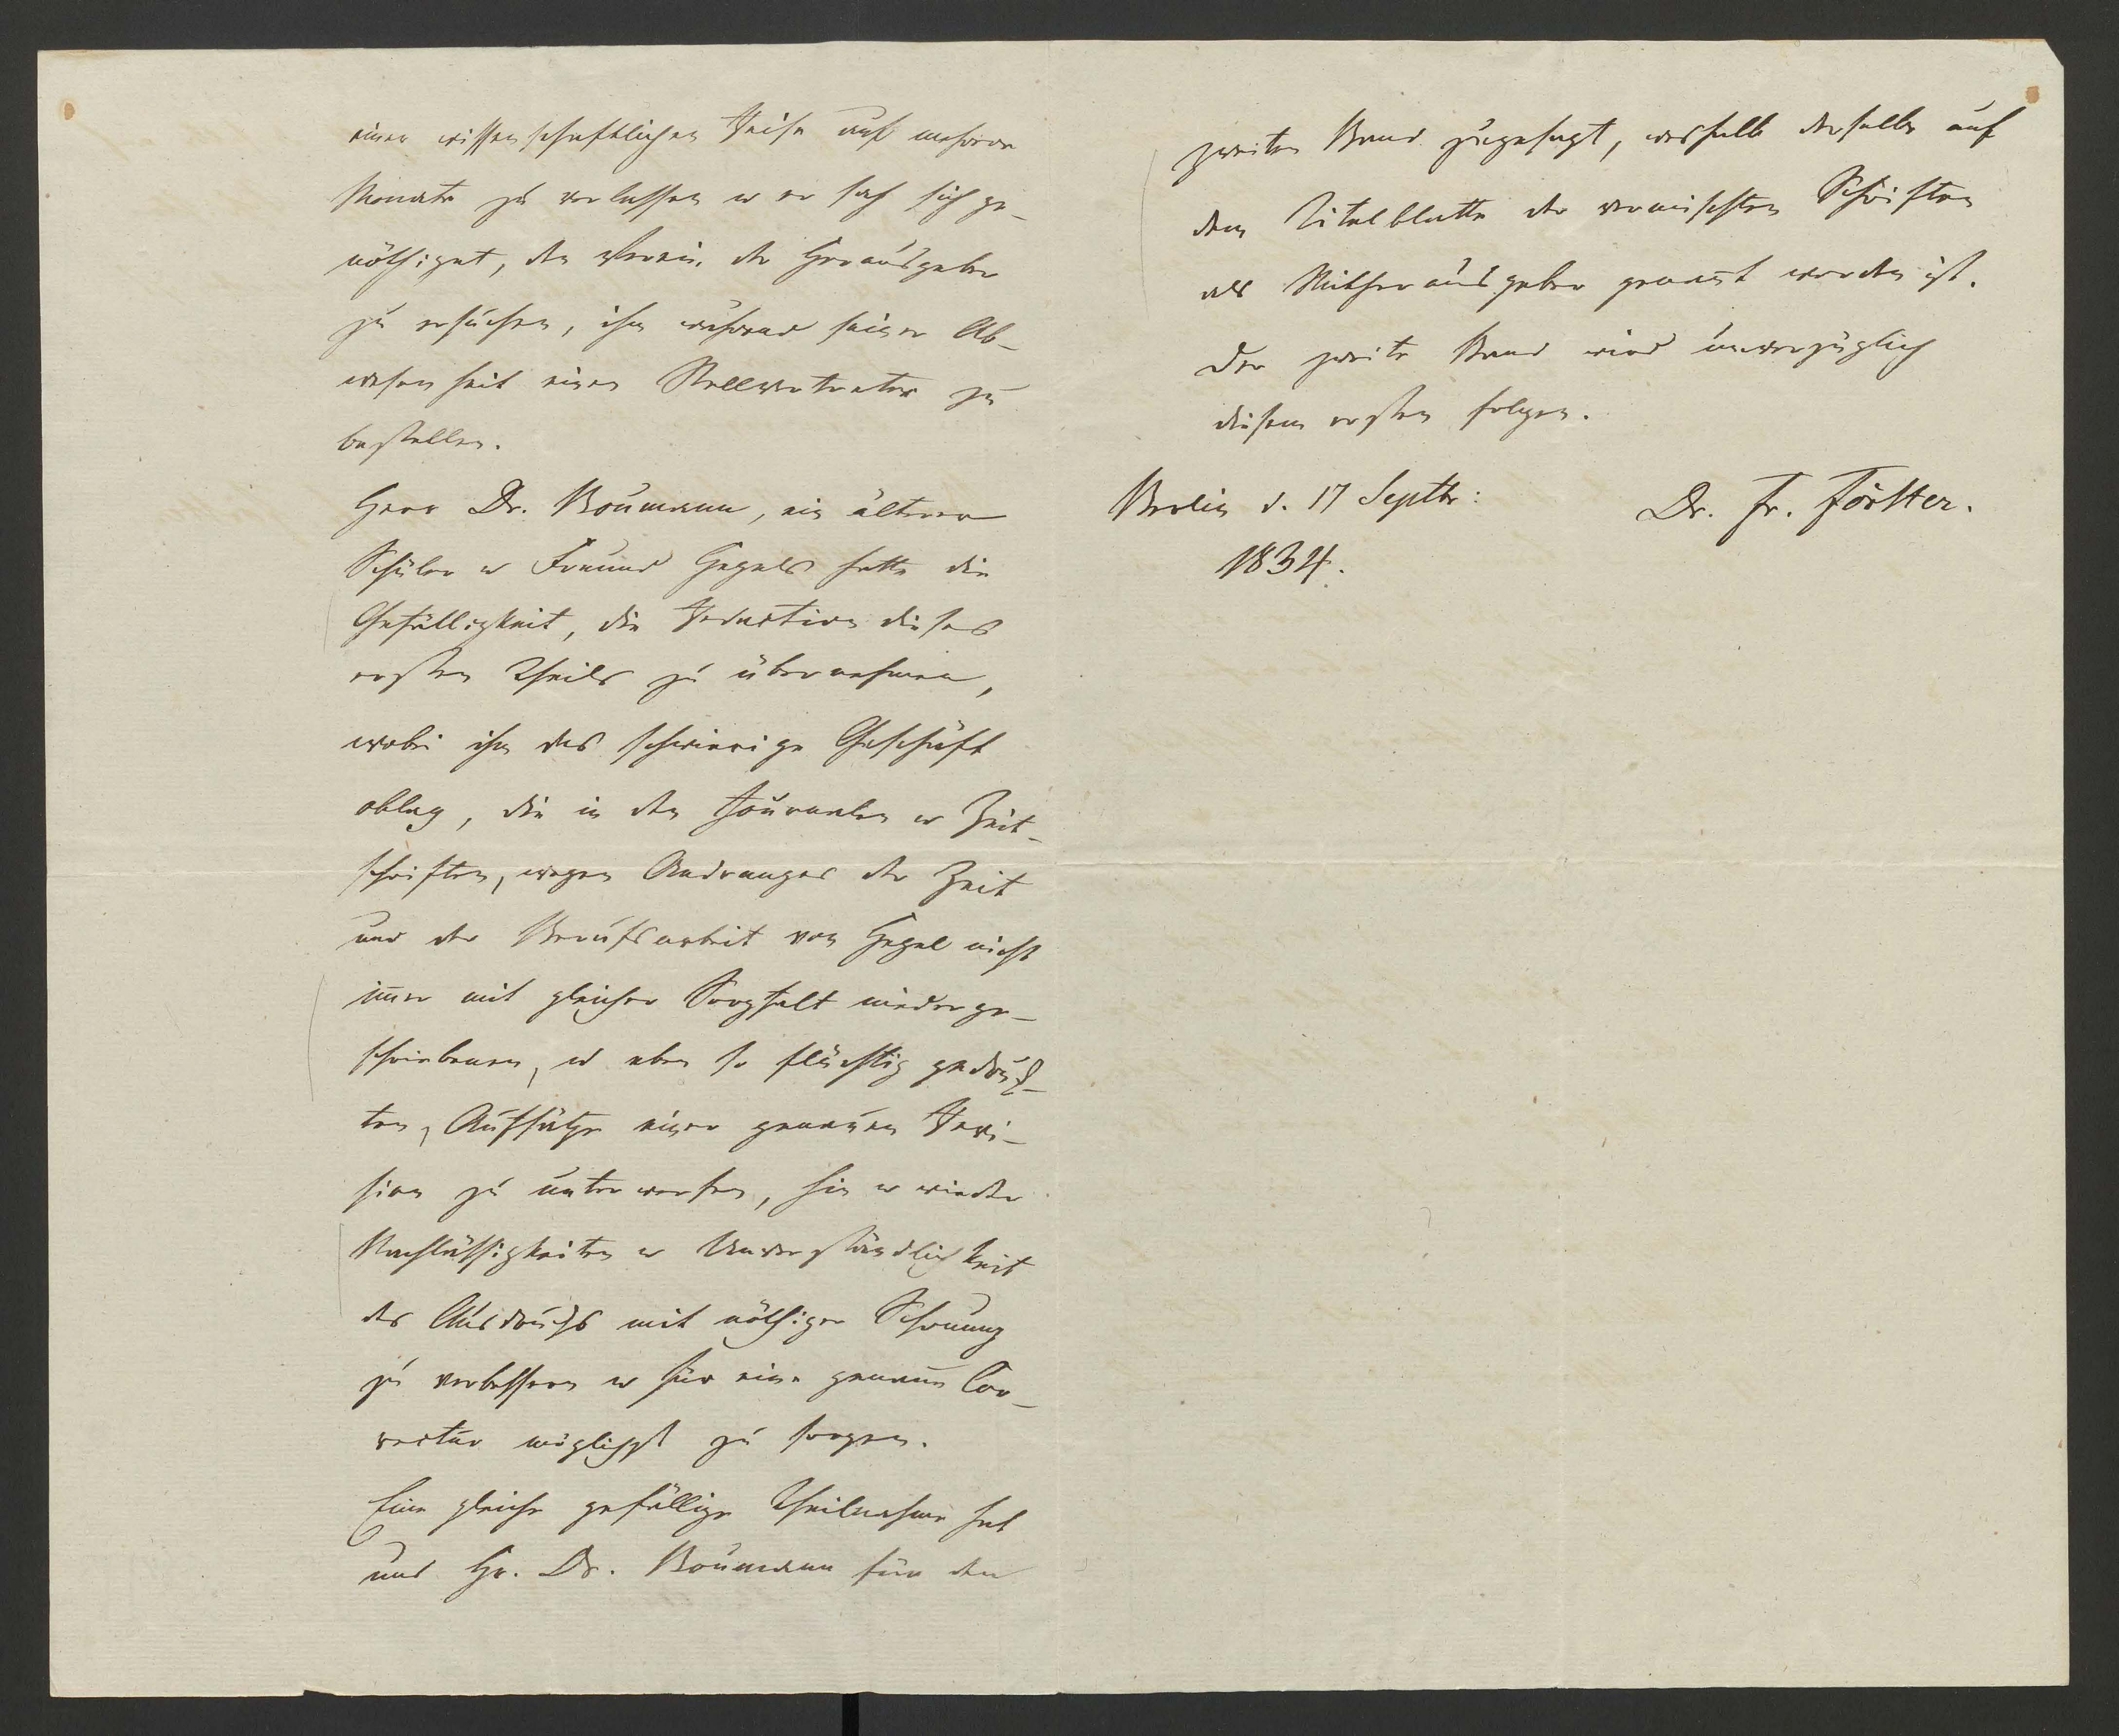 einer wissenschaftlichen Reise auf mehrere
Monate zu verlassen u er sah sich ge-
nöthiget, den Verein der Herausgeber
zu ersuchen, ihm während seiner Ab-
wesenheit einen Stellvertreter zu
bestellen.
Herr Dr. Boumann, ein älterer
Schüler u Freund Hegels hatte die
Gefälligkeit, die Redaction dieses
ersten Theils zu übernehmen,
wobei ihm das schwierige Geschäft
oblag, die in den Journalen u Zeit-
schriften, wegen Andranges der Zeit
und der Berufsarbeit von Hegel nicht
im̄er mit gleicher Sorgfalt niederge-
schriebenen, u eben so flüchtig gedruck-
ten, Aufsätze einer genauen Revi-
sion zu unterwerfen, hin u wieder
Nachlässigkeiten u Unverständlichkeit
des Ausdrucks mit nöthiger Schonung
zu verbessern u für eine genaue Cor-
rectur möglichst zu sorgen.
Eine gleiche gefällige Theilnahme hat
uns Hr. Dr. Boumann für den
zweiten Band zugesagt, weshalb derselbe auf
dem Titelblatte der vermischten Schriften
als Mitherausgeber genan̄t worden ist.
Der zweite Band wird unverzüglich
diesem ersten folgen.
Berlin d. 17 Septbr:
1834.
Dr. Fr. Förster.